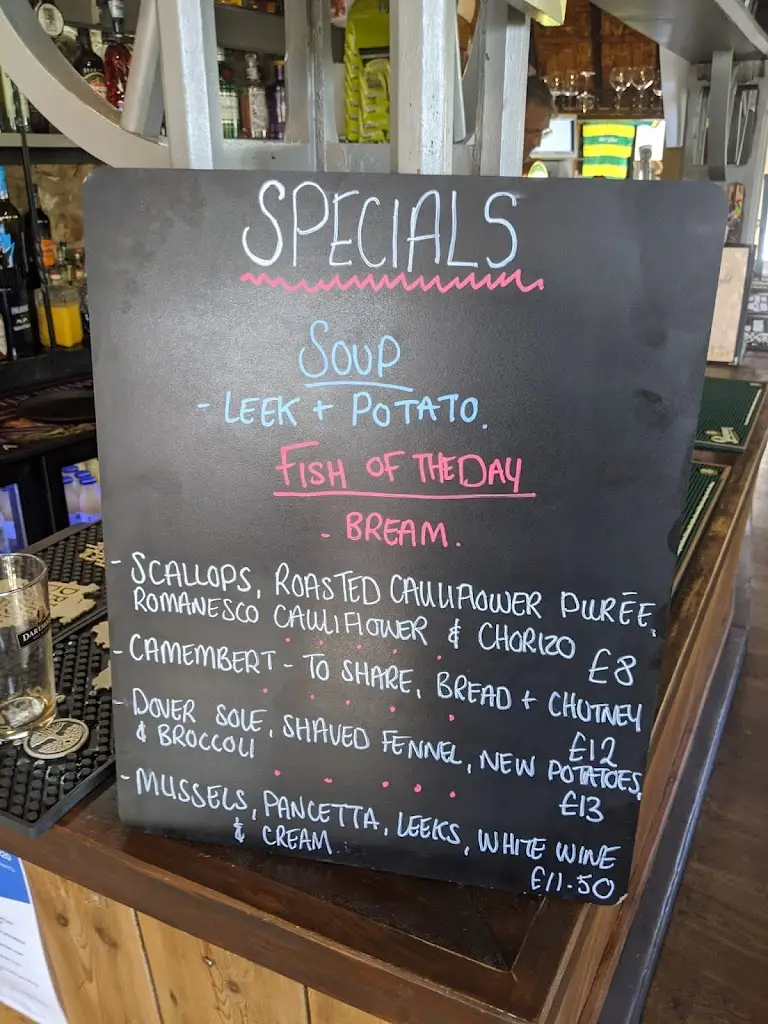 SPECIALS
SOUP
- LEEK + POTATO.
FISH OF THE DAY
- BREAM.
- SCALLOPS, ROASTED CAULIFLOWER PURĒE,
ROMANESCO CAULIFLOWER & CHORIZO £8
- CAMEMBERT - TO SHARE, BREAD + CHUTNEY
£12
- DOVER SOLE, SHAVED FENNEL, NEW POTATOES,
& BROCCOLI
£13
- MUSSELS, PANCETTA, LEEKS, WHITE WINE
& CREAM
£11.50